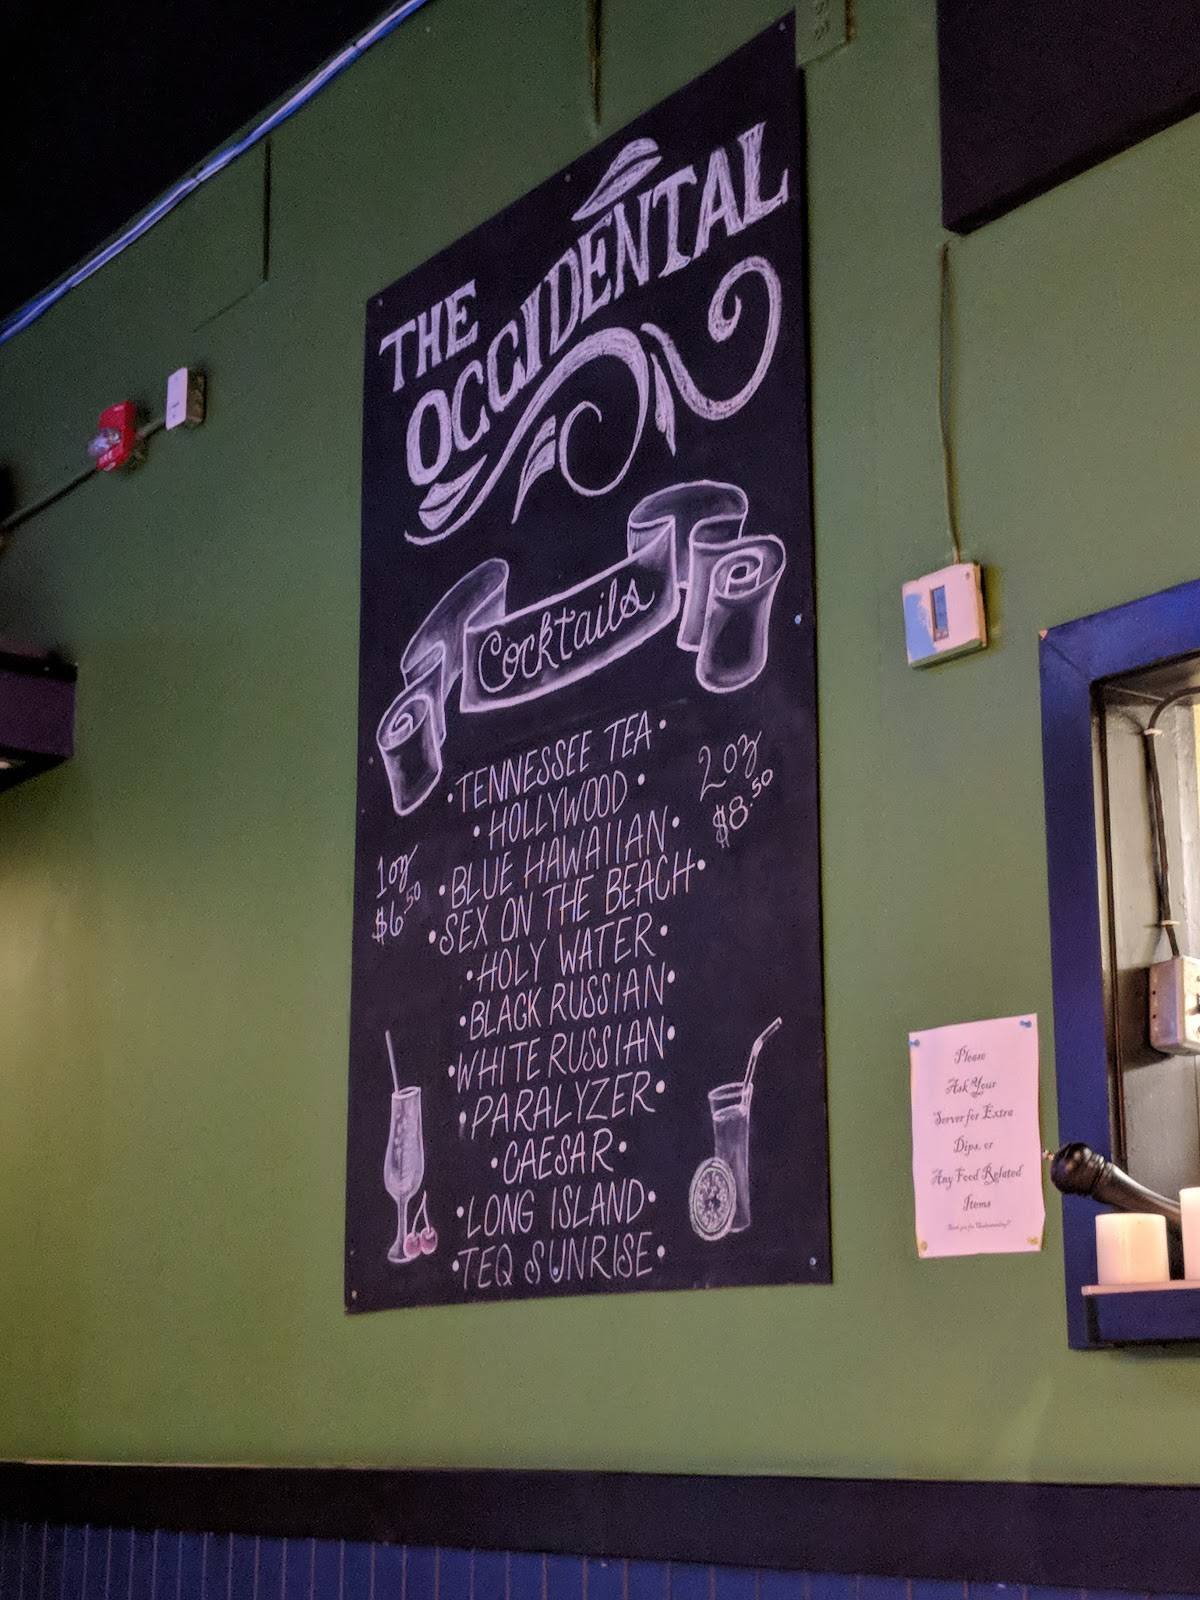 THE
OCCIDENTAL
Cocktails
• TENNESSEE TEA •
• HOLLYWOOD •
• BLUE HAWAIIAN •
• SEX ON THE BEACH •
• HOLY WATER •
• BLACK RUSSIAN •
• WHITE RUSSIAN •
• PARALYZER •
• CAESAR •
• LONG ISLAND •
• TEQ SUNRISE •
1oz
$6.50
2oz
$8.50
Please
Ask Your
Server for Extra
Dips, or
Any Food Related
Items